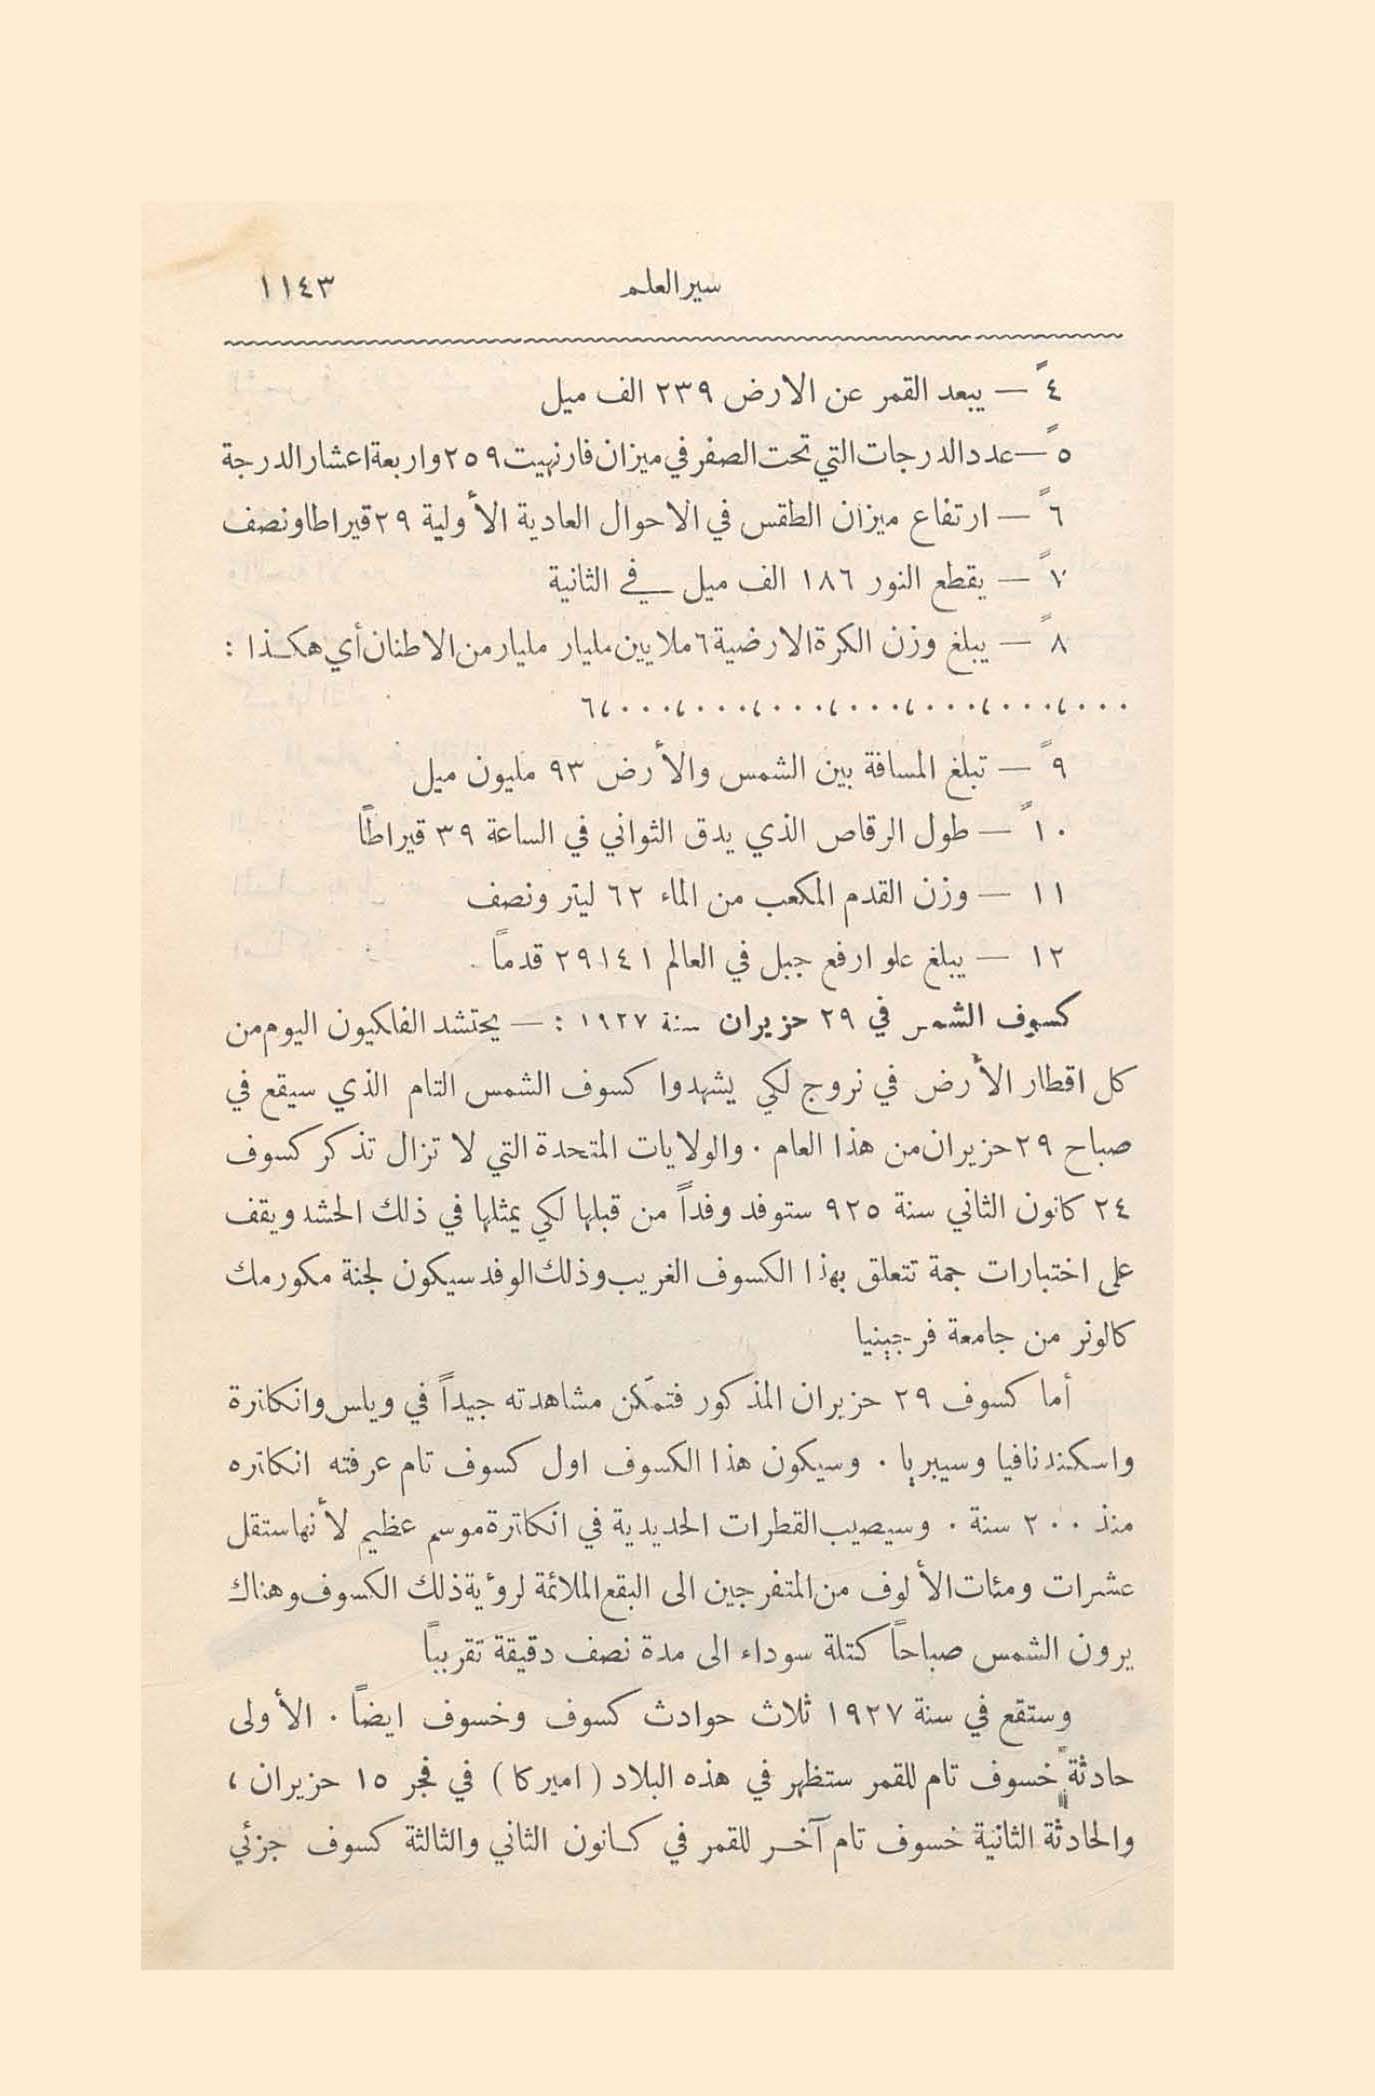 سير العلم ١١٤٣
٤ً — يبعد القمر عن الارض ٢٣٩ الف ميل
٥ً — عدد الدرجات التي تحت الصفر في ميزان فارنهيت ٢٥٩ واربعة اعشار الدرجة
٦ً — ارتفاع ميزان الطقس في الاحوال العادية الأولية ٢٩ قيراطا ونصف
٧ً — يقطع النور ١٨٦ الف ميل في الثانية
٨ً — يبلغ وزن الكرة الارضية ٦ ملايين مليار مليار من الاطنان أي هكذا :
٦،٠٠٠،٠٠٠،٠٠٠،٠٠٠،٠٠٠،٠٠٠،٠٠٠
٩ً — تبلغ المسافة بين الشمس والأرض ٩٣ مليون ميل
١٠ً — طول الرقاص الذي يدق الثواني في الساعة ٣٩ قيراطاً
١١ — وزن القدم المكعب من الماء ٦٢ ليتر ونصف
١٢ — يبلغ علو ارفع جبل في العالم ٢٩١٤١ قدماً .
كسوف الشمس في ٢٩ حزيران سنة ١٩٢٧ : — يحتشد الفلكيون اليوم من
كل اقطار الأرض في نروج لكي يشهدوا كسوف الشمس التام الذي سيقع في
صباح ٢٩ حزيران من هذا العام . والولايات المتحدة التي لا تزال تذكر كسوف
٢٤ كانون الثاني سنة ٩٢٥ ستوفد وفداً من قبلها لكي يمثلها في ذلك الحشد ويقف
على اختبارات جمة تتعلق بهذا الكسوف الغريب وذلك الوفد سيكون لجنة مكورمك
كالونر من جامعة فرجينيا
أما كسوف ٢٩ حزيران المذكور فتمكّن مشاهدته جيداً في ويلس وانكلترة
واسكندنافيا وسيبريا . وسيكون هذا الكسوف اول كسوف تام عرفته انكلتره
منذ ٢٠٠ سنة . وسيصيب القطرات الحديدية في انكلترة موسم عظيم لأنها ستقل
عشرات ومئات الألوف من المتفرجين الى البقع الملائمة لرؤية ذلك الكسوف وهناك
يرون الشمس صباحاً كتلة سوداء الى مدة نصف دقيقة تقريباً
وستقع في سنة ١٩٢٧ ثلاث حوادث كسوف وخسوف ايضاً . الأولى
حادثة خسوف تام للقمر ستظهر في هذه البلاد ( اميركا ) في فجر ١٥ حزيران ،
والحادثة الثانية خسوف تام آخر للقمر في كانون الثاني والثالثة كسوف جزئي